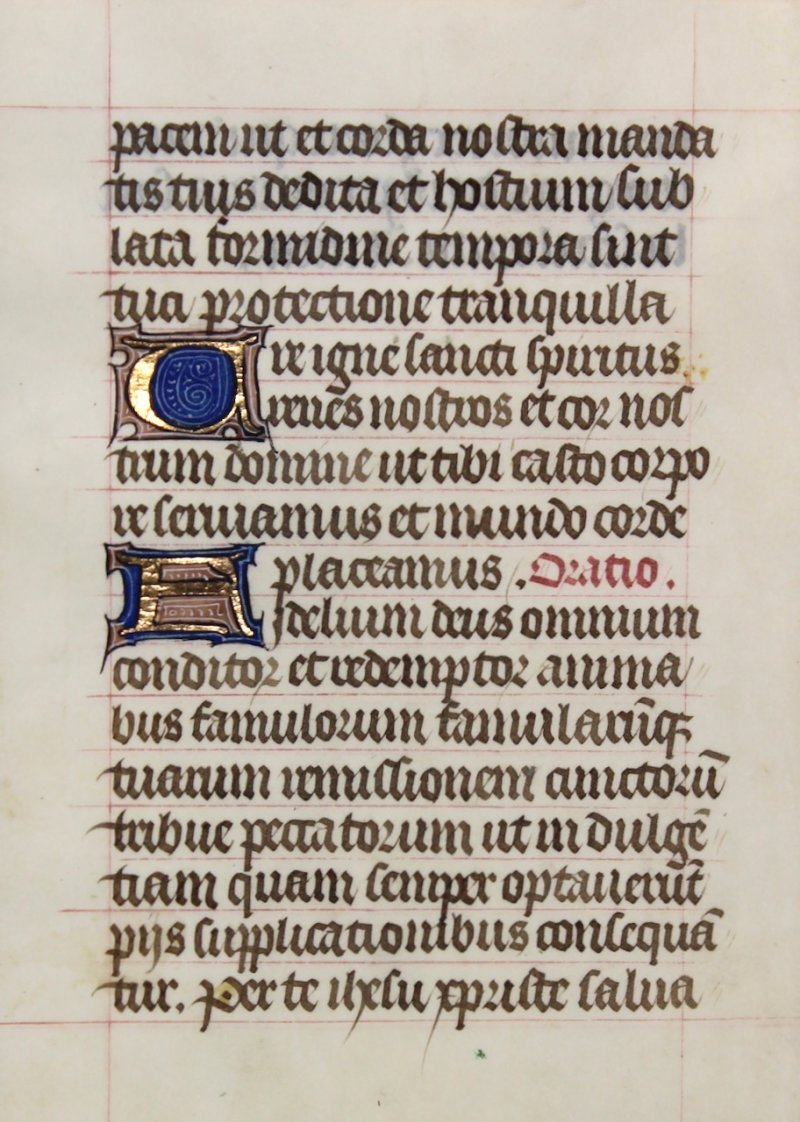 pacem ut et corda nostra manda
tis tuis dedita et hostium sub
lata formidine tempora sint
tua protectione tranquilla
Ure igne sancti spiritus
renes nostros et cor nos
trum domine ut tibi casto corpo
re seruiamus et mundo corde
placeamus . Oratio .
Fidelium deus omnium
conditor et redemptor anima
bus famulorum famularūq;
tuarum remissionem cunctorū
tribue peccatorum ut indulgē
tiam quam semper optauerūt
pijs supplicationibus consequā
tur. Per te ihesu xpriste salua